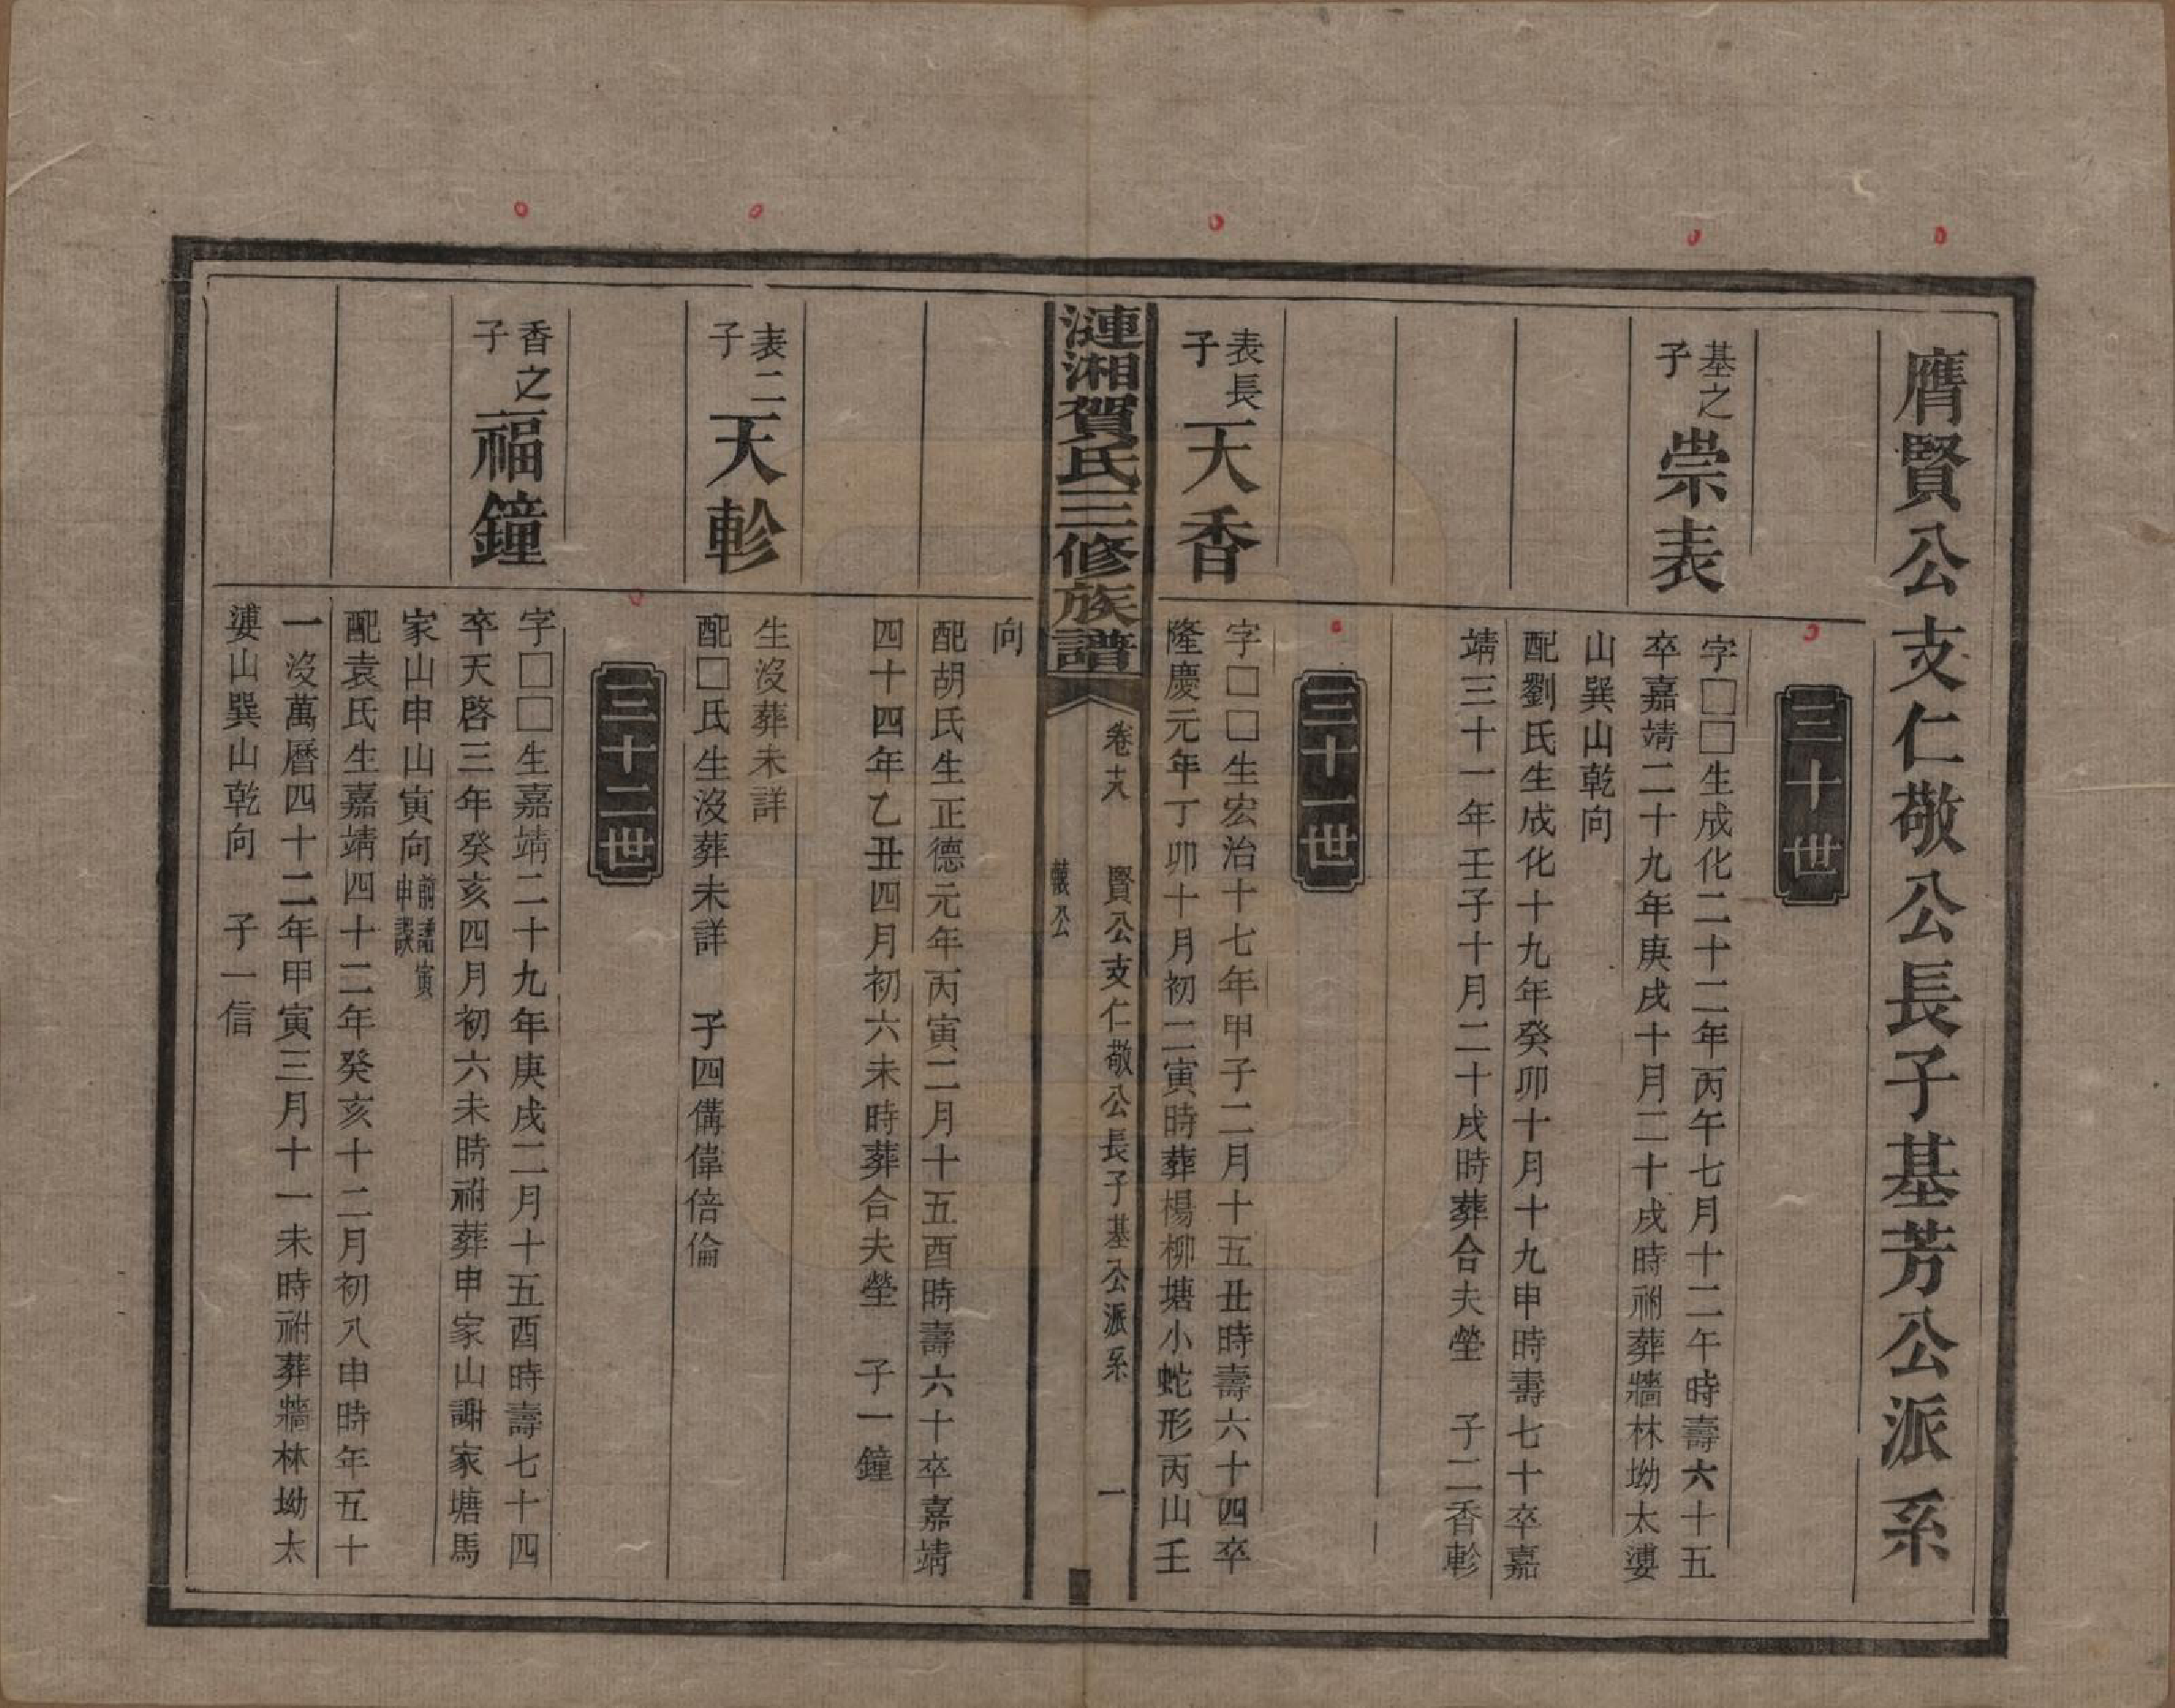 膺賢公支仁敬公長子基芳公派系
三十世
基之子 崇表
字□□生成化二十二年丙午七月十二午時壽六十五
卒嘉靖二十九年庚戌十月二十戌時祔葬牆林坳太婆
山巽山乾向
配劉氏生成化十九年癸卯十月十九申時壽七十卒嘉
靖三十一年壬子十月二十戌時葬合夫塋　子二香軫
三十一世
表長子 天香
字□□生宏治十七年甲子二月十五丑時壽六十四卒
隆慶元年丁卯十月初二寅時葬楊柳塘小蛇形丙山壬
漣湘賀氏三修族譜
卷十八
賢公支仁敬公長子基公派系
一
公
向
配胡氏生正德元年丙寅二月十五酉時壽六十卒嘉靖
四十四年乙丑四月初六未時葬合夫塋　子一鐘
表二子 天軫
生沒葬未詳
配□氏生沒葬未詳　子四備偉倍倫
三十二世
香之子 福鐘
字□□生嘉靖二十九年庚戌二月十五酉時壽七十四
卒天啓三年癸亥四月初六未時祔葬申家山謝家塘馬
家山申山寅向前譜寅申誤
配袁氏生嘉靖四十二年癸亥十二月初八申時年五十
一沒萬曆四十二年甲寅三月十一未時祔葬牆林坳太
婆山巽山乾向　子一信